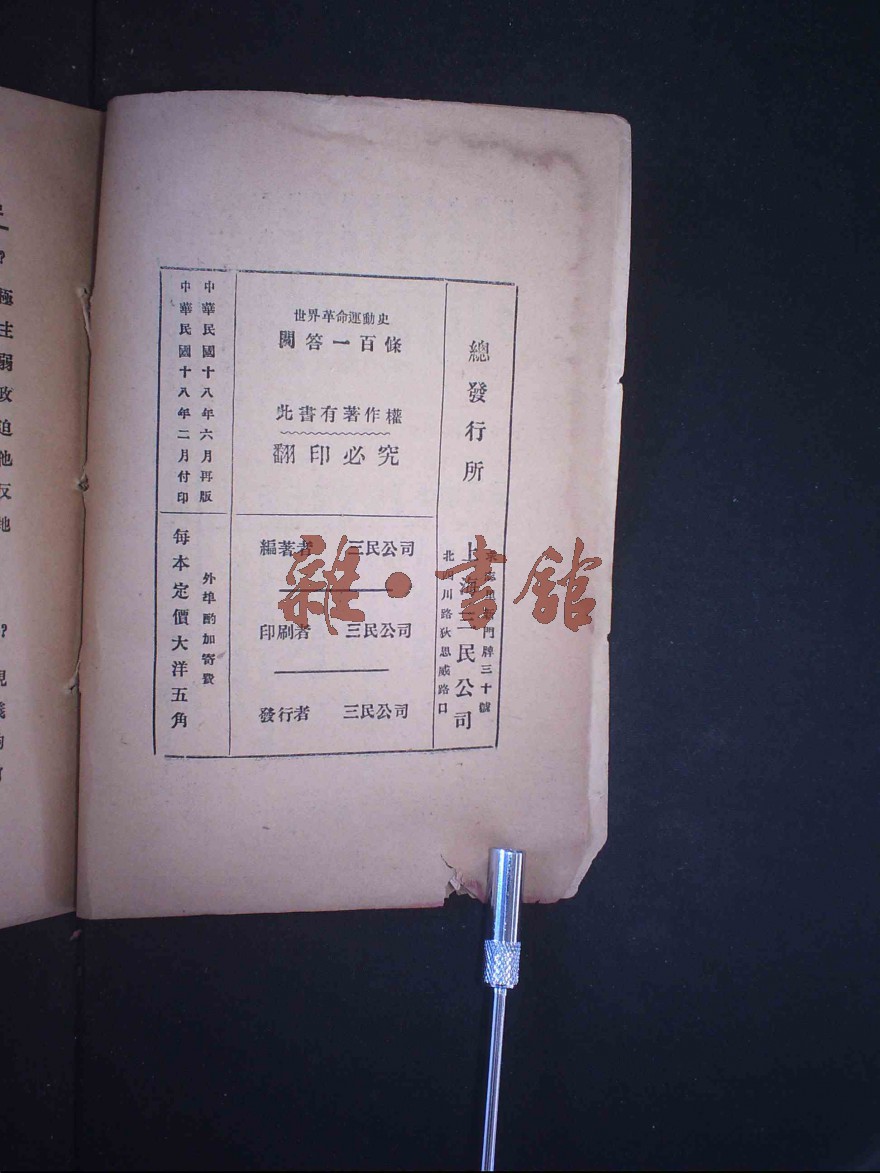 中華民國十八年二月付印
中華民國十八年六月再版
每本定價大洋五角
外埠酌加寄費
世界革命運動史
問答一百條
此書有著作權
翻印必究
編著者 三民公司
印刷者 三民公司
發行者 三民公司
總發行所
上海三民公司
門牌三十號
北四川路狄思威路口
雜·書館